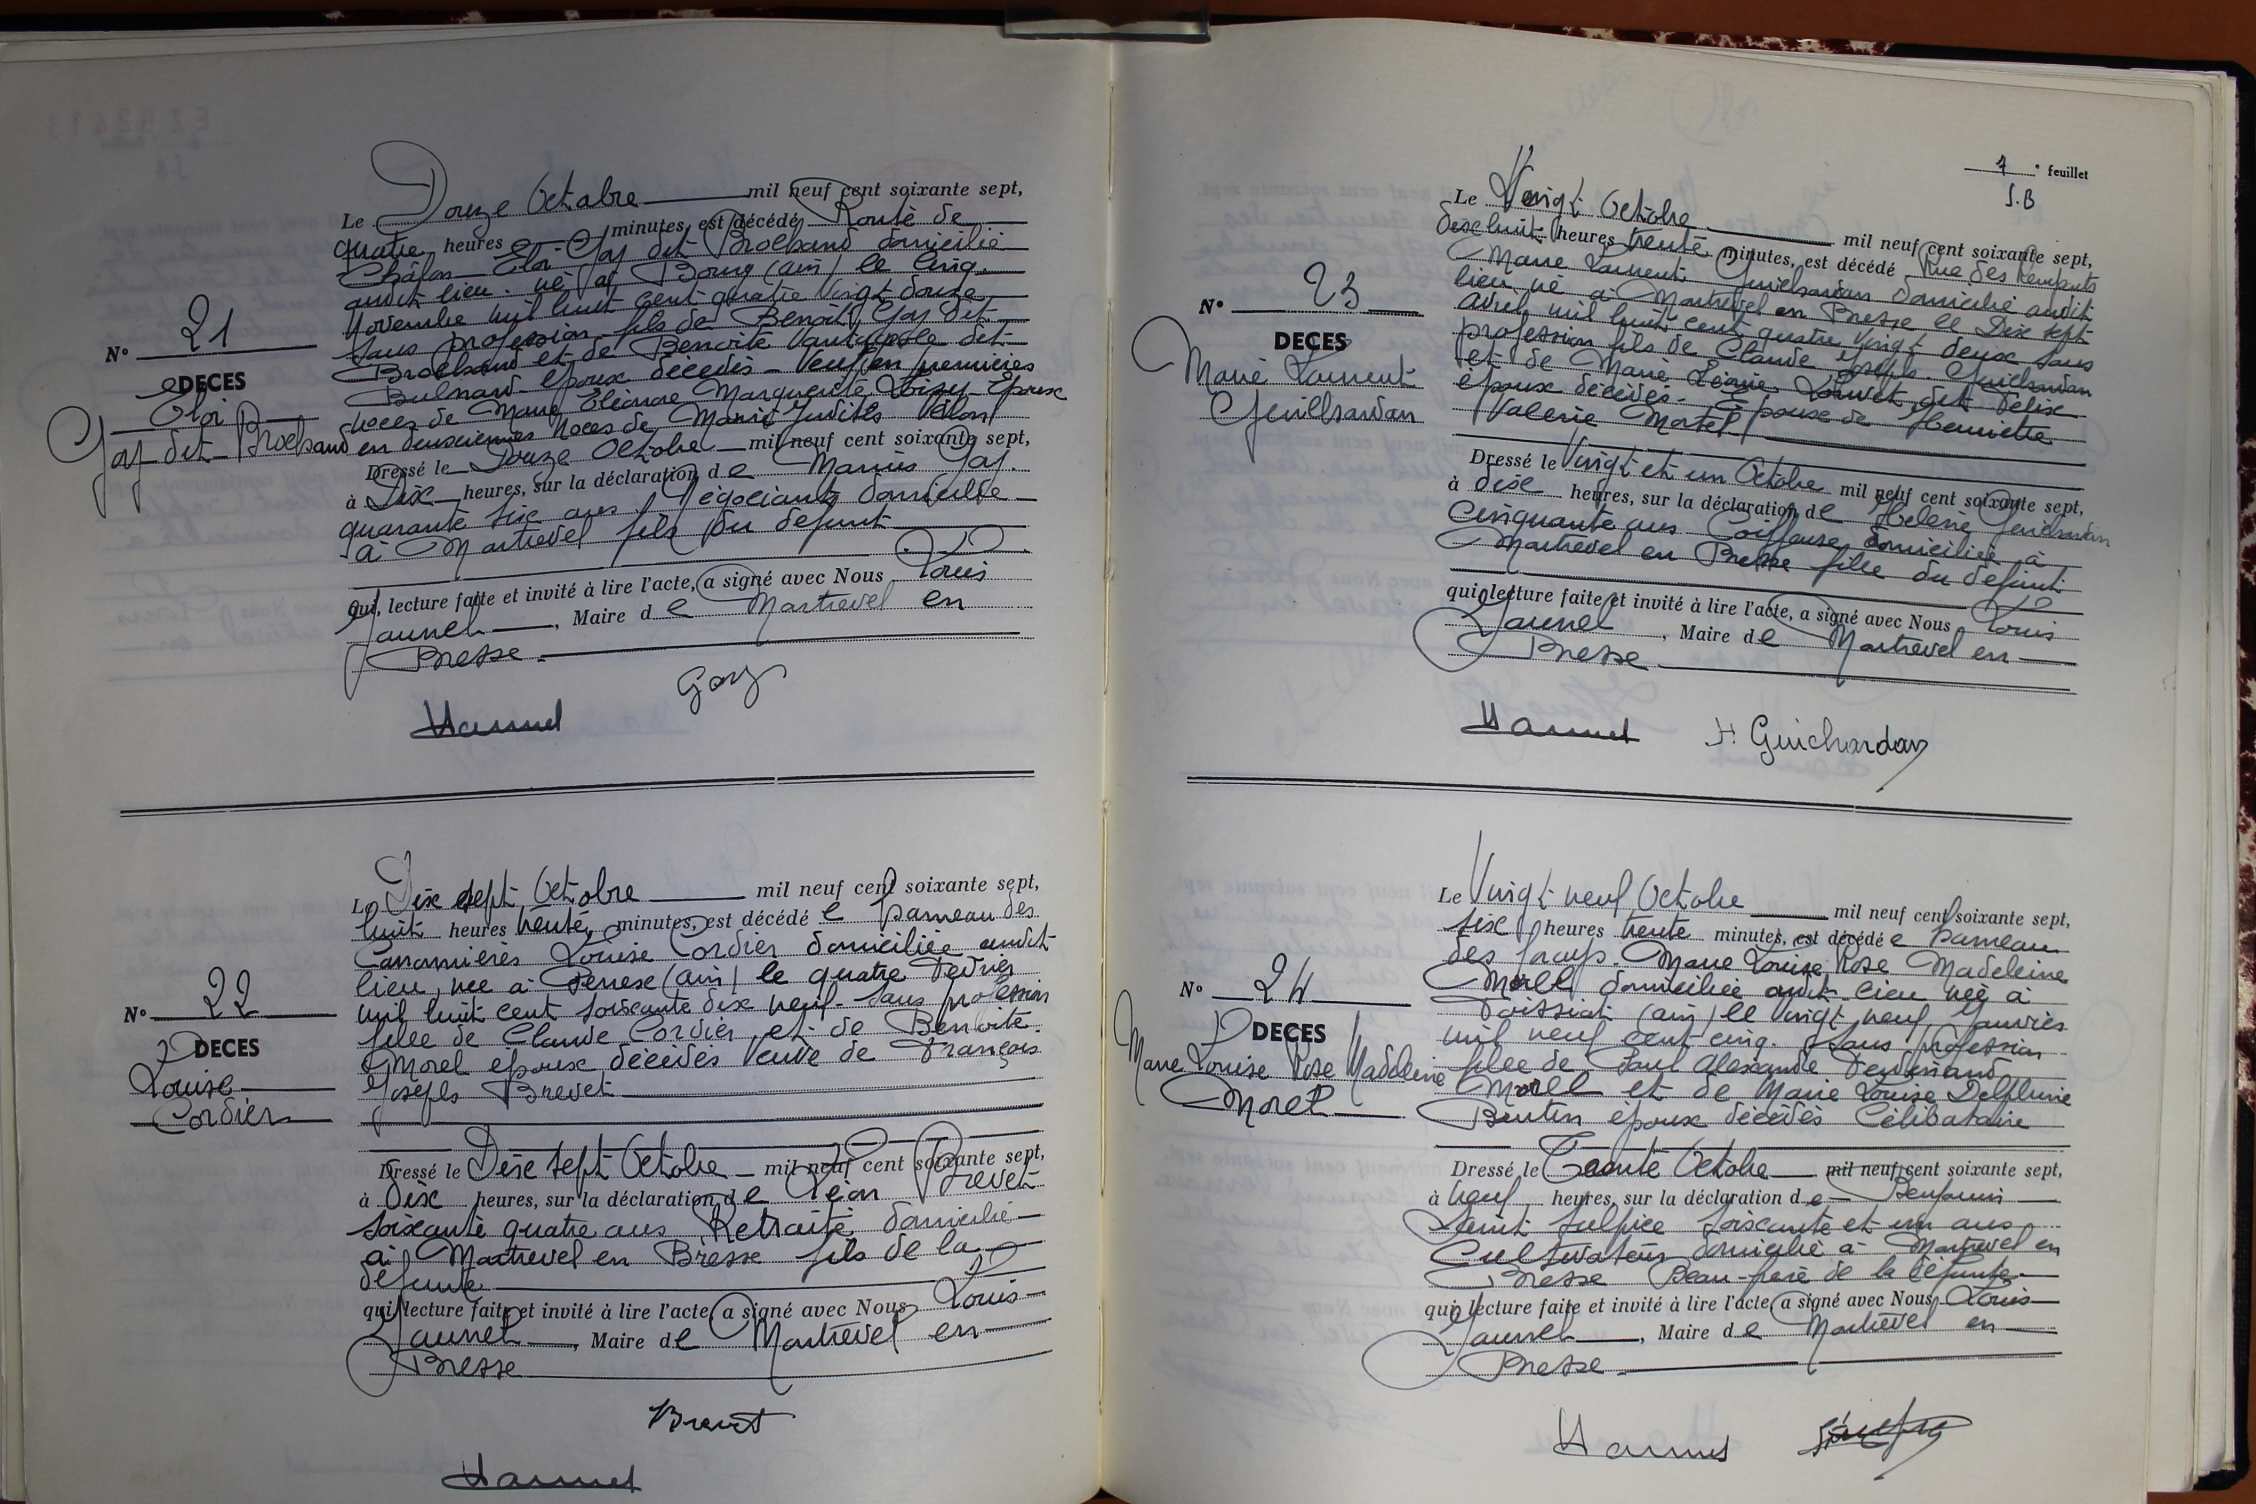 N° 21
DECES
Eloi
Gay dit Brochand
Le Douze Octobre mil neuf cent soixante sept,
quatre heures minutes, est décédé Route de
Châlon Eloi Gay dit Brochand domicilié
audit lieu. né à Bourg (ain) le cinq
Novembre mil huit cent quatre vingt douze
sans profession fils de Benoit Gay dit
Brochand et de Benoite dit
époux décédés - Veuf en premières
noces de Marie Eléonore Marguerite Loisy - Epoux
en deuxiemes Noces de Marie Judith
Dressé le Douze Octobre mil neuf cent soixante sept,
à Dix heures, sur la déclaration de Marius Gay.
quarante six ans Négociant domicilié
à Montrevel fils du défunt
qui, lecture faite et invité à lire l'acte, a signé avec Nous Louis
Jaunet, Maire de Montrevel en
Bresse.
Gay
Jaunet
N° 22
DECES
Louise
Cordier
Le Dix sept Octobre mil neuf cent soixante sept,
huit heures trente minutes, est décédée hameau des
Canonnières Louise Cordier domiciliée audit
lieu, née à (ain) le quatre Février
mil huit cent soixante dix neuf - sans profession
fille de Claude Cordier et de Benoite
Morel époux décédés Veuve de François
Joseph Brevet
Dressé le Dix sept Octobre mil neuf cent soixante sept,
à Dix heures, sur la déclaration de Léon Brevet
soixante quatre ans Retraité domicilié
à Montrevel en Bresse fils de la
défunte
qui, lecture faite et invité à lire l'acte, a signé avec Nous Louis
Jaunet, Maire de Montrevel en
Bresse
Brevet
Jaunet
7e feuillet
S.B
N° 23
DECES
Marie Laurent
Guichardan
Le Vingt Octobre mil neuf cent soixante sept,
dix huit heures trente minutes, est décédé Rue des Remparts
Marie Laurent Guichardan domicilié audit
lieu, né à Montrevel en Bresse le Dix sept
avril mil huit cent quatre vingt deux sans
profession fils de Claude Joseph Guichardan
et de Marie Léonie Louvet dit Felix
époux décédés - Epoux de Henriette
Valerie Mortel
Dressé le Vingt et un Octobre mil neuf cent soixante sept,
à dix heures, sur la déclaration de Helene Guichardan
cinquante ans Coiffeuse domiciliée à
Montrevel en Bresse fille du défunt
qui, lecture faite et invité à lire l'acte, a signé avec Nous Louis
Jaunet, Maire de Montrevel en
Bresse
Jaunet H. Guichardan
N° 24
DECES
Marie Louise Rose Madeleine
Morel
Le Vingt neuf Octobre mil neuf cent soixante sept,
six heures trente minutes, est décédée hameau
des Marie Louise Rose Madeleine
Morel domiciliée audit lieu née à
Foissiat (ain) le Vingt neuf Janvier
mil neuf cent cinq. sans profession
fille de Paul Alexandre Ferdinand
Morel et de Marie Louise Delphine
époux décédés Célibataire
Dressé le Trente Octobre mil neuf cent soixante sept,
à neuf heures, sur la déclaration de Benjamin
Saint Sulpice soixante et un ans
Cultivateur domicilié à Montrevel en
Bresse Beau-frère de la défunte
qui, lecture faite et invité à lire l'acte, a signé avec Nous Louis
Jaunet, Maire de Montrevel en
Bresse.
Jaunet